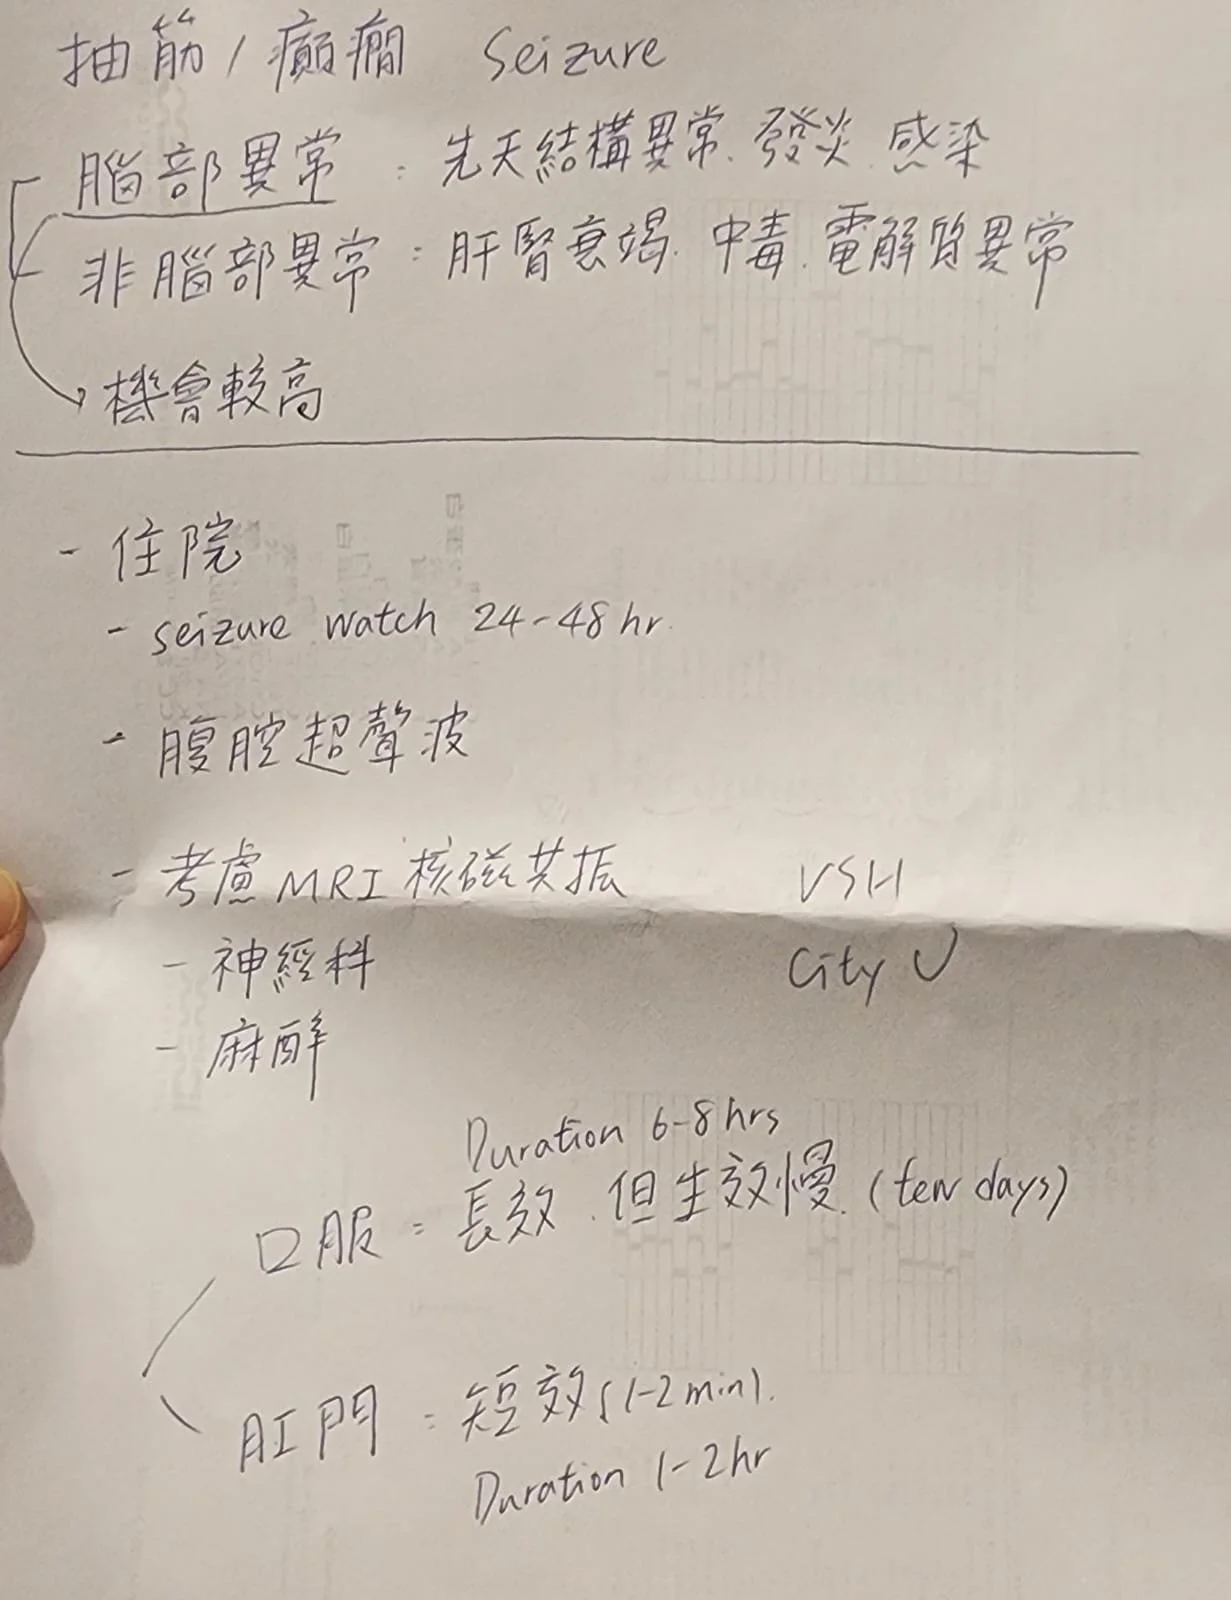 抽筋 / 癲癇 Seizure
腦部異常 : 先天結構異常、發炎、感染
非腦部異常 : 肝腎衰竭、中毒、電解質異常
機會較高
- 住院
- seizure watch 24-48 hr.
- 腹腔超聲波
- 考慮 MRI 核磁共振 VSH
- 神經科 City U
- 麻醉
Duration 6-8 hrs
口服 : 長效、但生效慢 (few days)
肛門 : 短效 (1-2 min).
Duration 1-2 hr